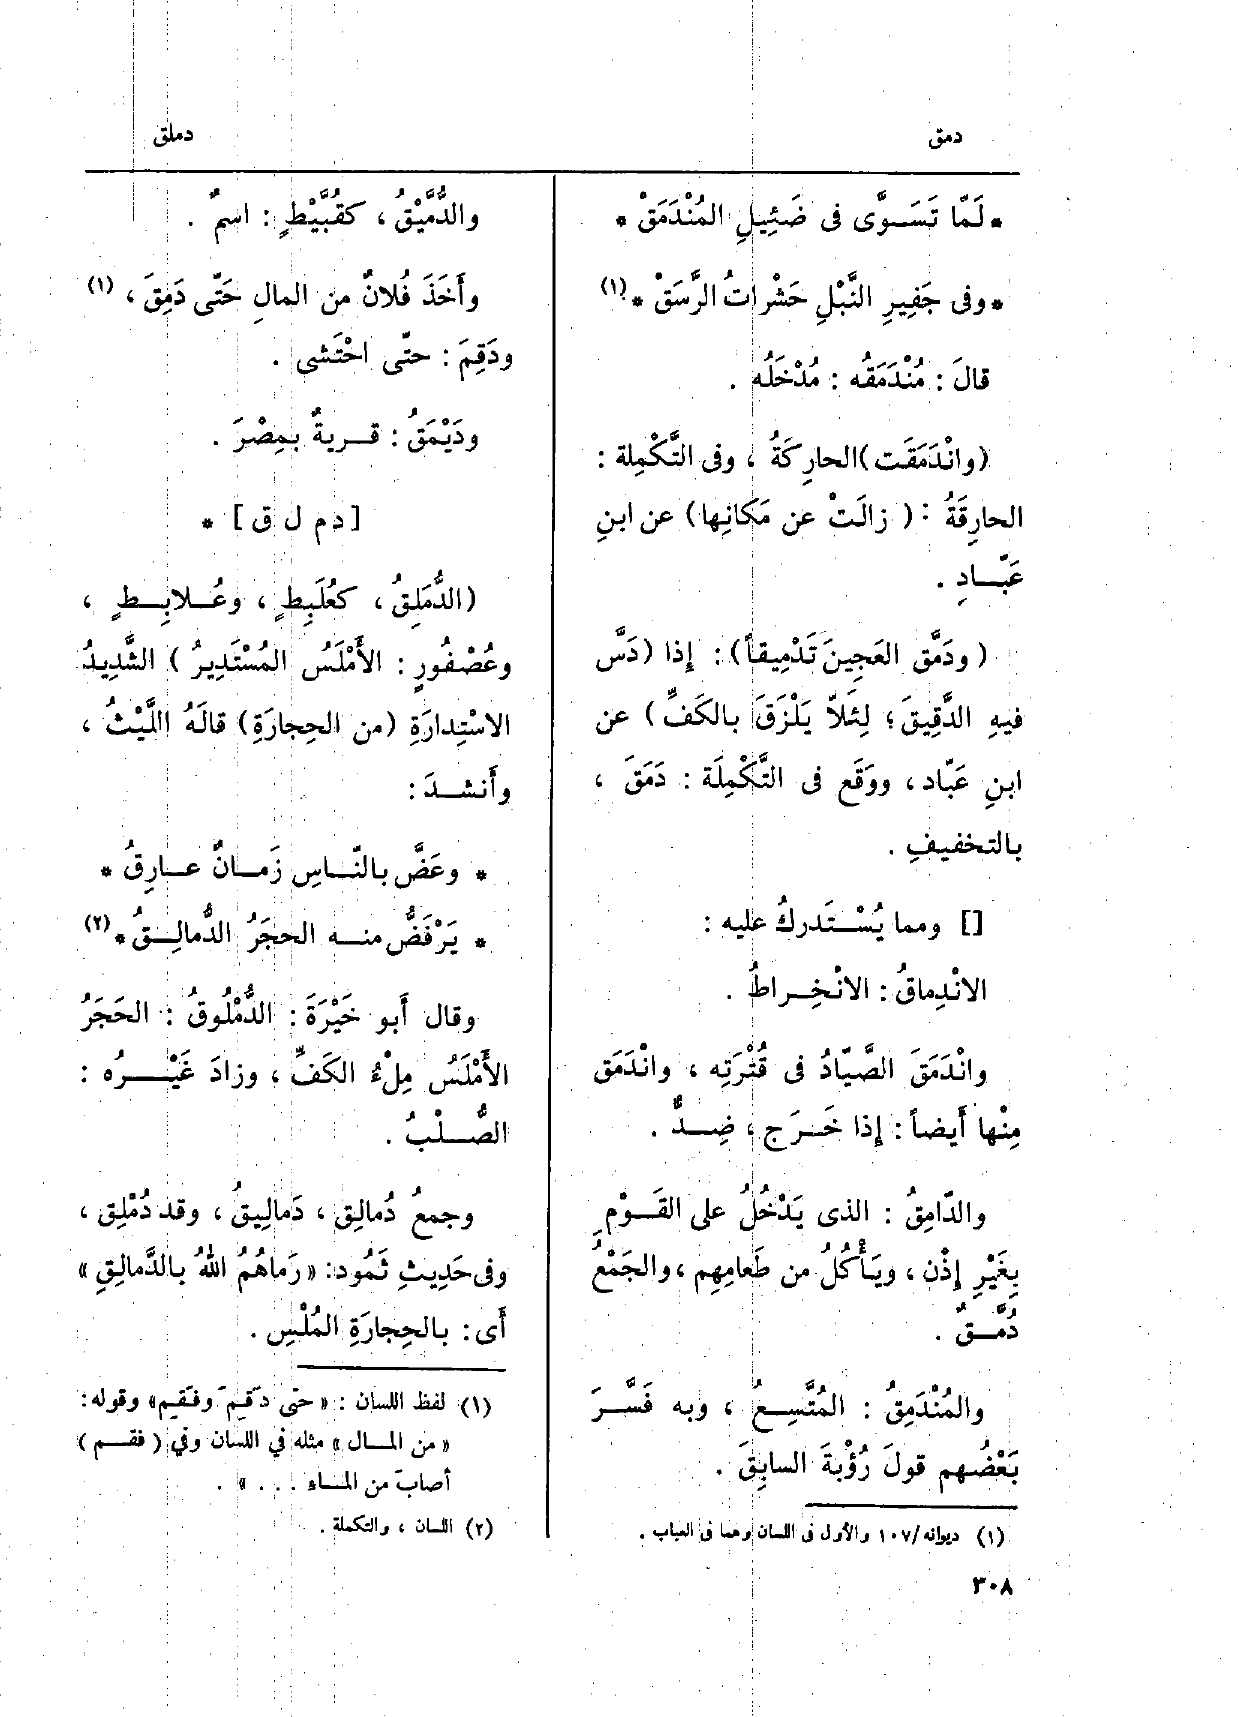 دمق
دملق
* لَمّا تَسَوَّى فى ضَئِيلِ المُنْدَمَقْ *
* وفى جَفِيرِ النَّبْلِ حَشْراتُ الرَّسَقْ *(١)
قالَ : مُنْدَمَقُه : مُدْخَلُه .
(وانْدَمَقَت) الحارِكَةُ ، وفى التَّكْمِلة :
الحارِقَةُ : ( زالَتْ عن مَكانِها) عن ابنِ
عَبّادِ .
( ودَمَّق العَجِينَ تَدْمِيقاً) : إذا (دَسَّ
فيهِ الدَّقِيقَ ؛ لِئَلاّ يَلْزَقَ بالكَفِّ ) عن
ابنِ عَبّاد ، ووَقَع فى التَّكْمِلَة : دَمَقَ ،
بالتخفيفِ .
[] ومما يُسْتَدركُ عليه :
الانْدِماقُ : الانْخِراطُ .
وانْدَمَقَ الصَّيّادُ فى قُتْرَتِه ، وانْدَمَق
مِنْها أَيضاً : إذا خَرَج ، ضِدٌّ .
والدّامِقُ : الذى يَدْخُلُ على القَوْمِ
بِغَيْرِ إِذْن ، ويَأْكُلُ من طَعامِهِم ، والجَمْعُ
دُمَّقٌ .
والمُنْدَمِقُ : المُتَّسِعُ ، وبه فَسَّرَ
بَعْضُهم قولَ رُؤْبةَ السابِقَ .
(١) ديوانه/١٠٧ والأول فى اللسان وهما فى العباب .
٣٠٨
والدُّمَّيْقُ ، كقُبَّيْطٍ : اسمٌ .
وأَخَذَ فُلانٌ من المالِ حَتّى دَمِقَ ، (١)
ودَقِمَ : حتّى احْتَشى .
ودَيْمَقُ : قريةٌ بمِصْرَ .
[ د م ل ق ] *
(الدُّمَلِقُ ، كعُلَبِطٍ ، وعُلابِطٍ ،
وعُصْفُورٍ : الأَمْلَسُ المُسْتَدِيرُ ) الشَّدِيدُ
الاسْتِدارَةِ (من الحِجارَةِ) قالَهُ اللَّيْثُ ،
وأَنشدَ :
* وعَضَّ بالنّاسِ زَمانٌ عارِقُ *
* يَرْفَضُّ منه الحجَرُ الدُّمالِقُ *(٢)
وقال أَبو خَيْرَةَ : الدُّمْلُوقُ : الحَجَرُ
الأَمْلَسُ مِلْءُ الكَفِّ ، وزادَ غَيْرُه :
الصُّلْبُ .
وجمعُ دُمالِق ، دَمالِيقُ ، وقد دُمْلِق ،
وفى حَدِيثِ ثَمُود : « رَماهُمُ اللهُ بالدَّمالِقِ »
أَى : بالحِجارَةِ المُلْسِ .
(١) لفظ اللسان : « حتى دَقِمَ وفَقِيم » وقوله :
« من المال » مثله في اللسان وفي ( فقم )
أصابَ من الماء . . . » .
(٢) اللسان ، والتكملة .